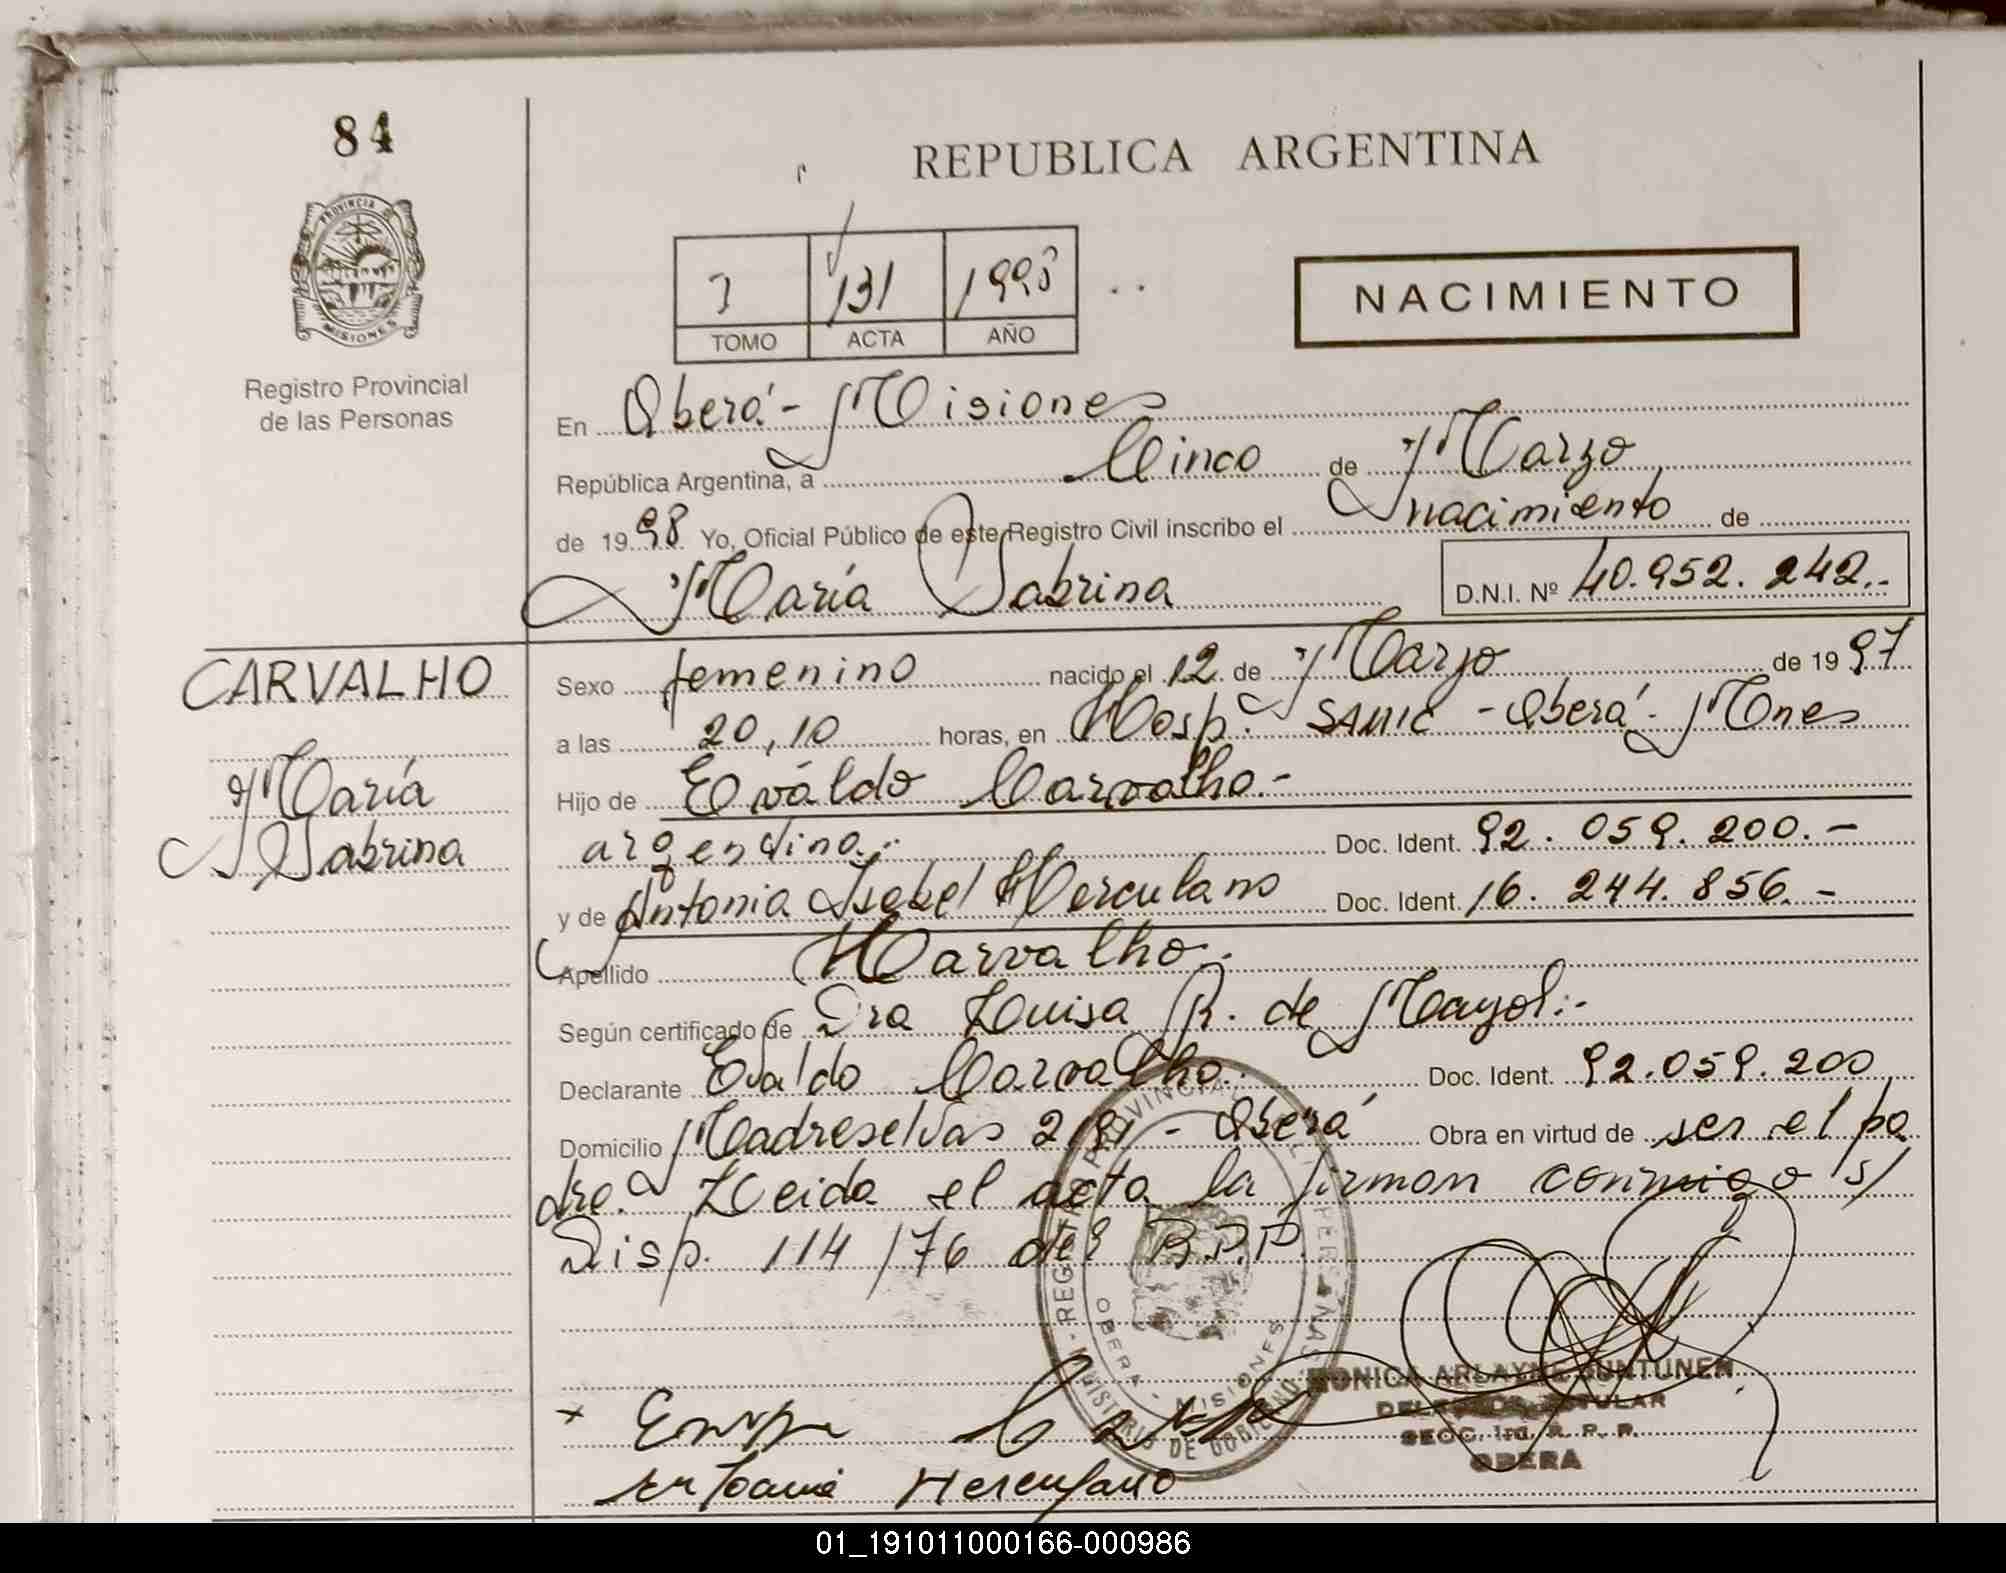 84
REPUBLICA ARGENTINA
PROVINCIA DE MISIONES
Registro Provincial
de las Personas
131 1998
TOMO ACTA AÑO
NACIMIENTO
En Oberá - Misiones
República Argentina, a Cinco de Marzo
de 1998 Yo, Oficial Público de este Registro Civil inscribo el nacimiento de
María Sabrina D.N.I. Nº 40.952.242.-
CARVALHO
María
Sabrina
Sexo femenino nacido el 12 de Marzo de 1997
a las 20,10 horas, en Hosp. SAMIC - Oberá - Mnes
Hijo de Evaldo Carvalho.-
argentino.- Doc. Ident. 92.059.200.-
y de Antonia Isabel Herculano Doc. Ident. 16.244.856.-
Apellido Carvalho.
Según certificado de Dra Luisa R. de Mayol.-
Declarante Evaldo Carvalho. Doc. Ident. 92.059.200
Domicilio Madreselvas - Oberá Obra en virtud de ser el pa
dre. Leida el acta la firman conmigo s/
Disp. 114/76 del R.P.P.
MINISTERIO DE GOBIERNO - REGISTRO PROVINCIAL DE LAS PERSONAS
OBERA - MISIONES
MONICA ARLAYNE SUNTUNEN
DELEGADO TITULAR
SECC. 1ra. R. P. P.
OBERA
Antonia Herculano
01_191011000166-000986